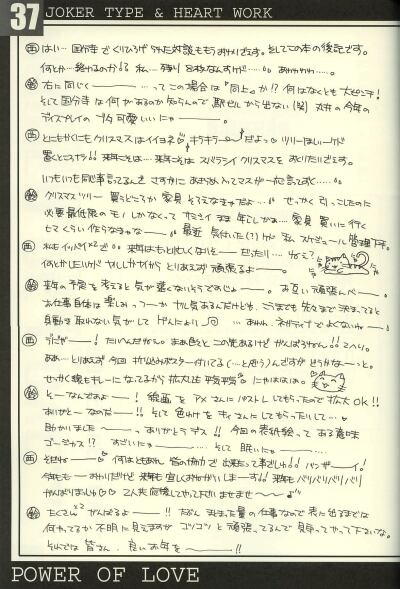 37 JOKER TYPE & HEART WORK
西 はい…国分寺でくりひろげられた対談ももうおわりでます。そしてこの本の後記です。
何とか…終わるのか!! 私…残り8枚なんすけど……。あわわわわ……。
鈴 右に同じく———…ってこの場合は「同上」か!? 何はなくとも大ピンチ!
そして国分寺は何があるのか知らんので駅ビルから出ない(笑) 丸井の今年の
ディスプレイのブタ可愛いいにゃ———。
西 とにもかくにもクリスマスはイイヨネ キラキラ〜だよっ ツリーほしいーけど
置くとこナシ!! 来年こそは…来年こそはスバラシイクリスマスをおくりたいでます。
いつもいつも同じ事言ってるんでさすがにあきらめ入ってマスが一応言っておく……。
鈴 クリスマスツリー 買うどころか家具そろえなきゃだよ…。せっかく引っこしたのに
必要最低限のモノしかなくって サミシイまま年こしかよ…。家具買いに行く
ヒマくらい作らなきゃな——。最近気付いた(?)けど私スケジュール管理下手。
西 私もイッパイx2で。来年はもっと忙しくなりそ——だったり…。
何とかしたいけど とりあえず頑張るよ———。
鈴 来年の予定を考えると気が遠くなりそうですのじゃ———。お互い頑張んべ——。
お仕事自体は楽しみっつーかヤル気あるんだけども、こうまでも先々まで決まってると
身動き取れない気がしてげんにょり …あわわ、ネガティブでよくないゎ——。
西 うだぁ——! たいへんだがん。まぁ色々とこの先あるけどがんばろうゼい!! エヘリ。
ああ…とりあえず今回折り込みポスター付いてる(…と思う)んですがどうかな〜っと。
せっかく線もキレーになってるから拡大しても平気 にゃははは。
鈴 そーなんですよー! 線画をアメさんにパストレしてもらったので拡大OK!!
ありがと— なのだ——!! そして色わけをキィさんにしてもらいまして…
助かりました———っありがとうデス!! 今回の表紙絵ってある意味
ゴージャス!? すごいにゃ———…。そして眠いにゃ———…
西 それね——♡ 何はともあれ 皆の協力で出来たって事だしゅ!! バンザ——イ!
今年も——おわりだけど来年も宜しくおねがいしま——す!! 来年もバリバリバリバリ
がんばりまっしゅ 2人共応援してやって下さいませませ———♪
鈴 たくさんx2がんばるよ——!! たぶんきまった量の仕事なので表に出るまでは
何やってるか不明に見えますがゴソゴソと頑張ってるんで見守ってやって下さいな。
それでは皆さん、良いお年を————!!
POWER OF LOVE